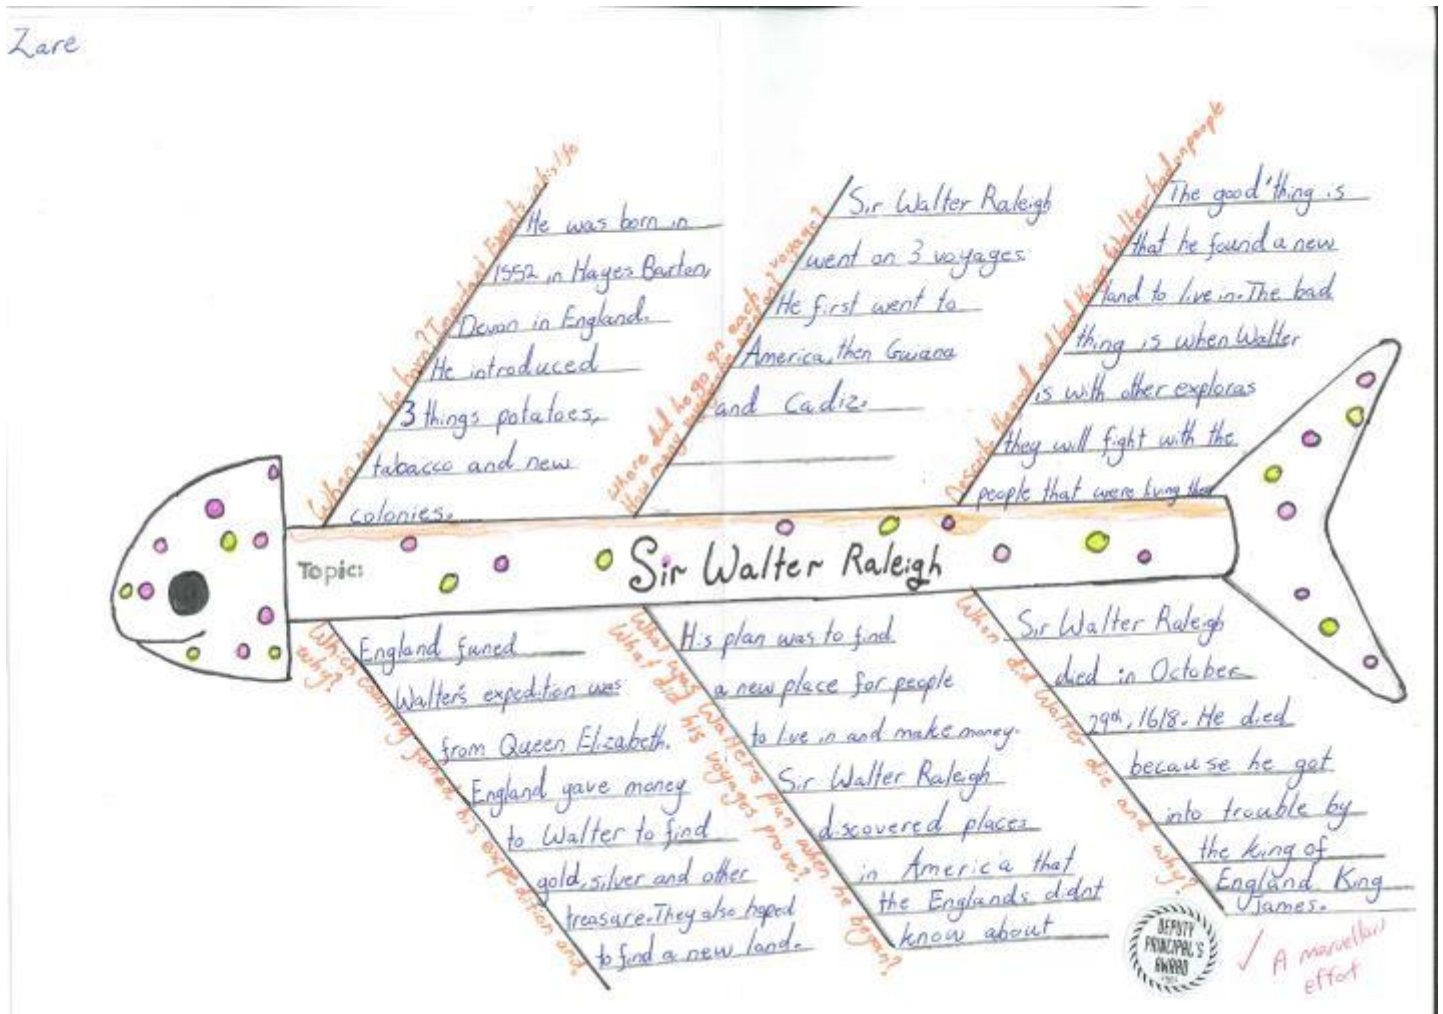 Zare
When was he born? Important Events in his life
He was born in
1552 in Hayes Barton,
Devon in England.
He introduced
3 things potatoes,
tabacco and new
colonies.
Where did he go on each voyage?
How many
Sir Walter Raleigh
went on 3 voyages
He first went to
America, then Guiana
and Cadiz.
Describe the good and bad things Walter had on people
The good thing is
that he found a new
land to live in. The bad
thing is when Walter
is with other exploras
they will fight with the
people that were living there
Topic:
Sir Walter Raleigh
Which country funed his expedition and
why?
England funed
Walter's expedition was
from Queen Elizabeth.
England gave money
to Walter to find
gold, silver and other
treasure. They also hoped
to find a new land.
What was Walters plan when he began?
What did his voyages prove?
His plan was to find
a new place for people
to live in and make money.
Sir Walter Raleigh
discovered places
in America that
the Englands didnt
know about
When did Walter die and why?
Sir Walter Raleigh
died in October
29th, 1618. He died
because he got
into trouble by
the king of
England King
James.
DEPUTY
PRINCIPAL'S
AWARD
✓ A marvellous
effort